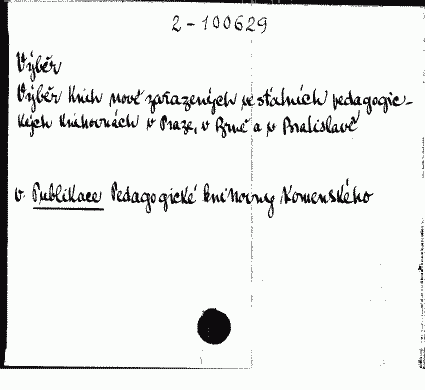 2-100629
Výběr
Výběr knih nově zařazených ve státních pedagogic-
kých knihovnách v Praze, v Brně a v Bratislavě
v. Publikace Pedagogické knihovny Komenského